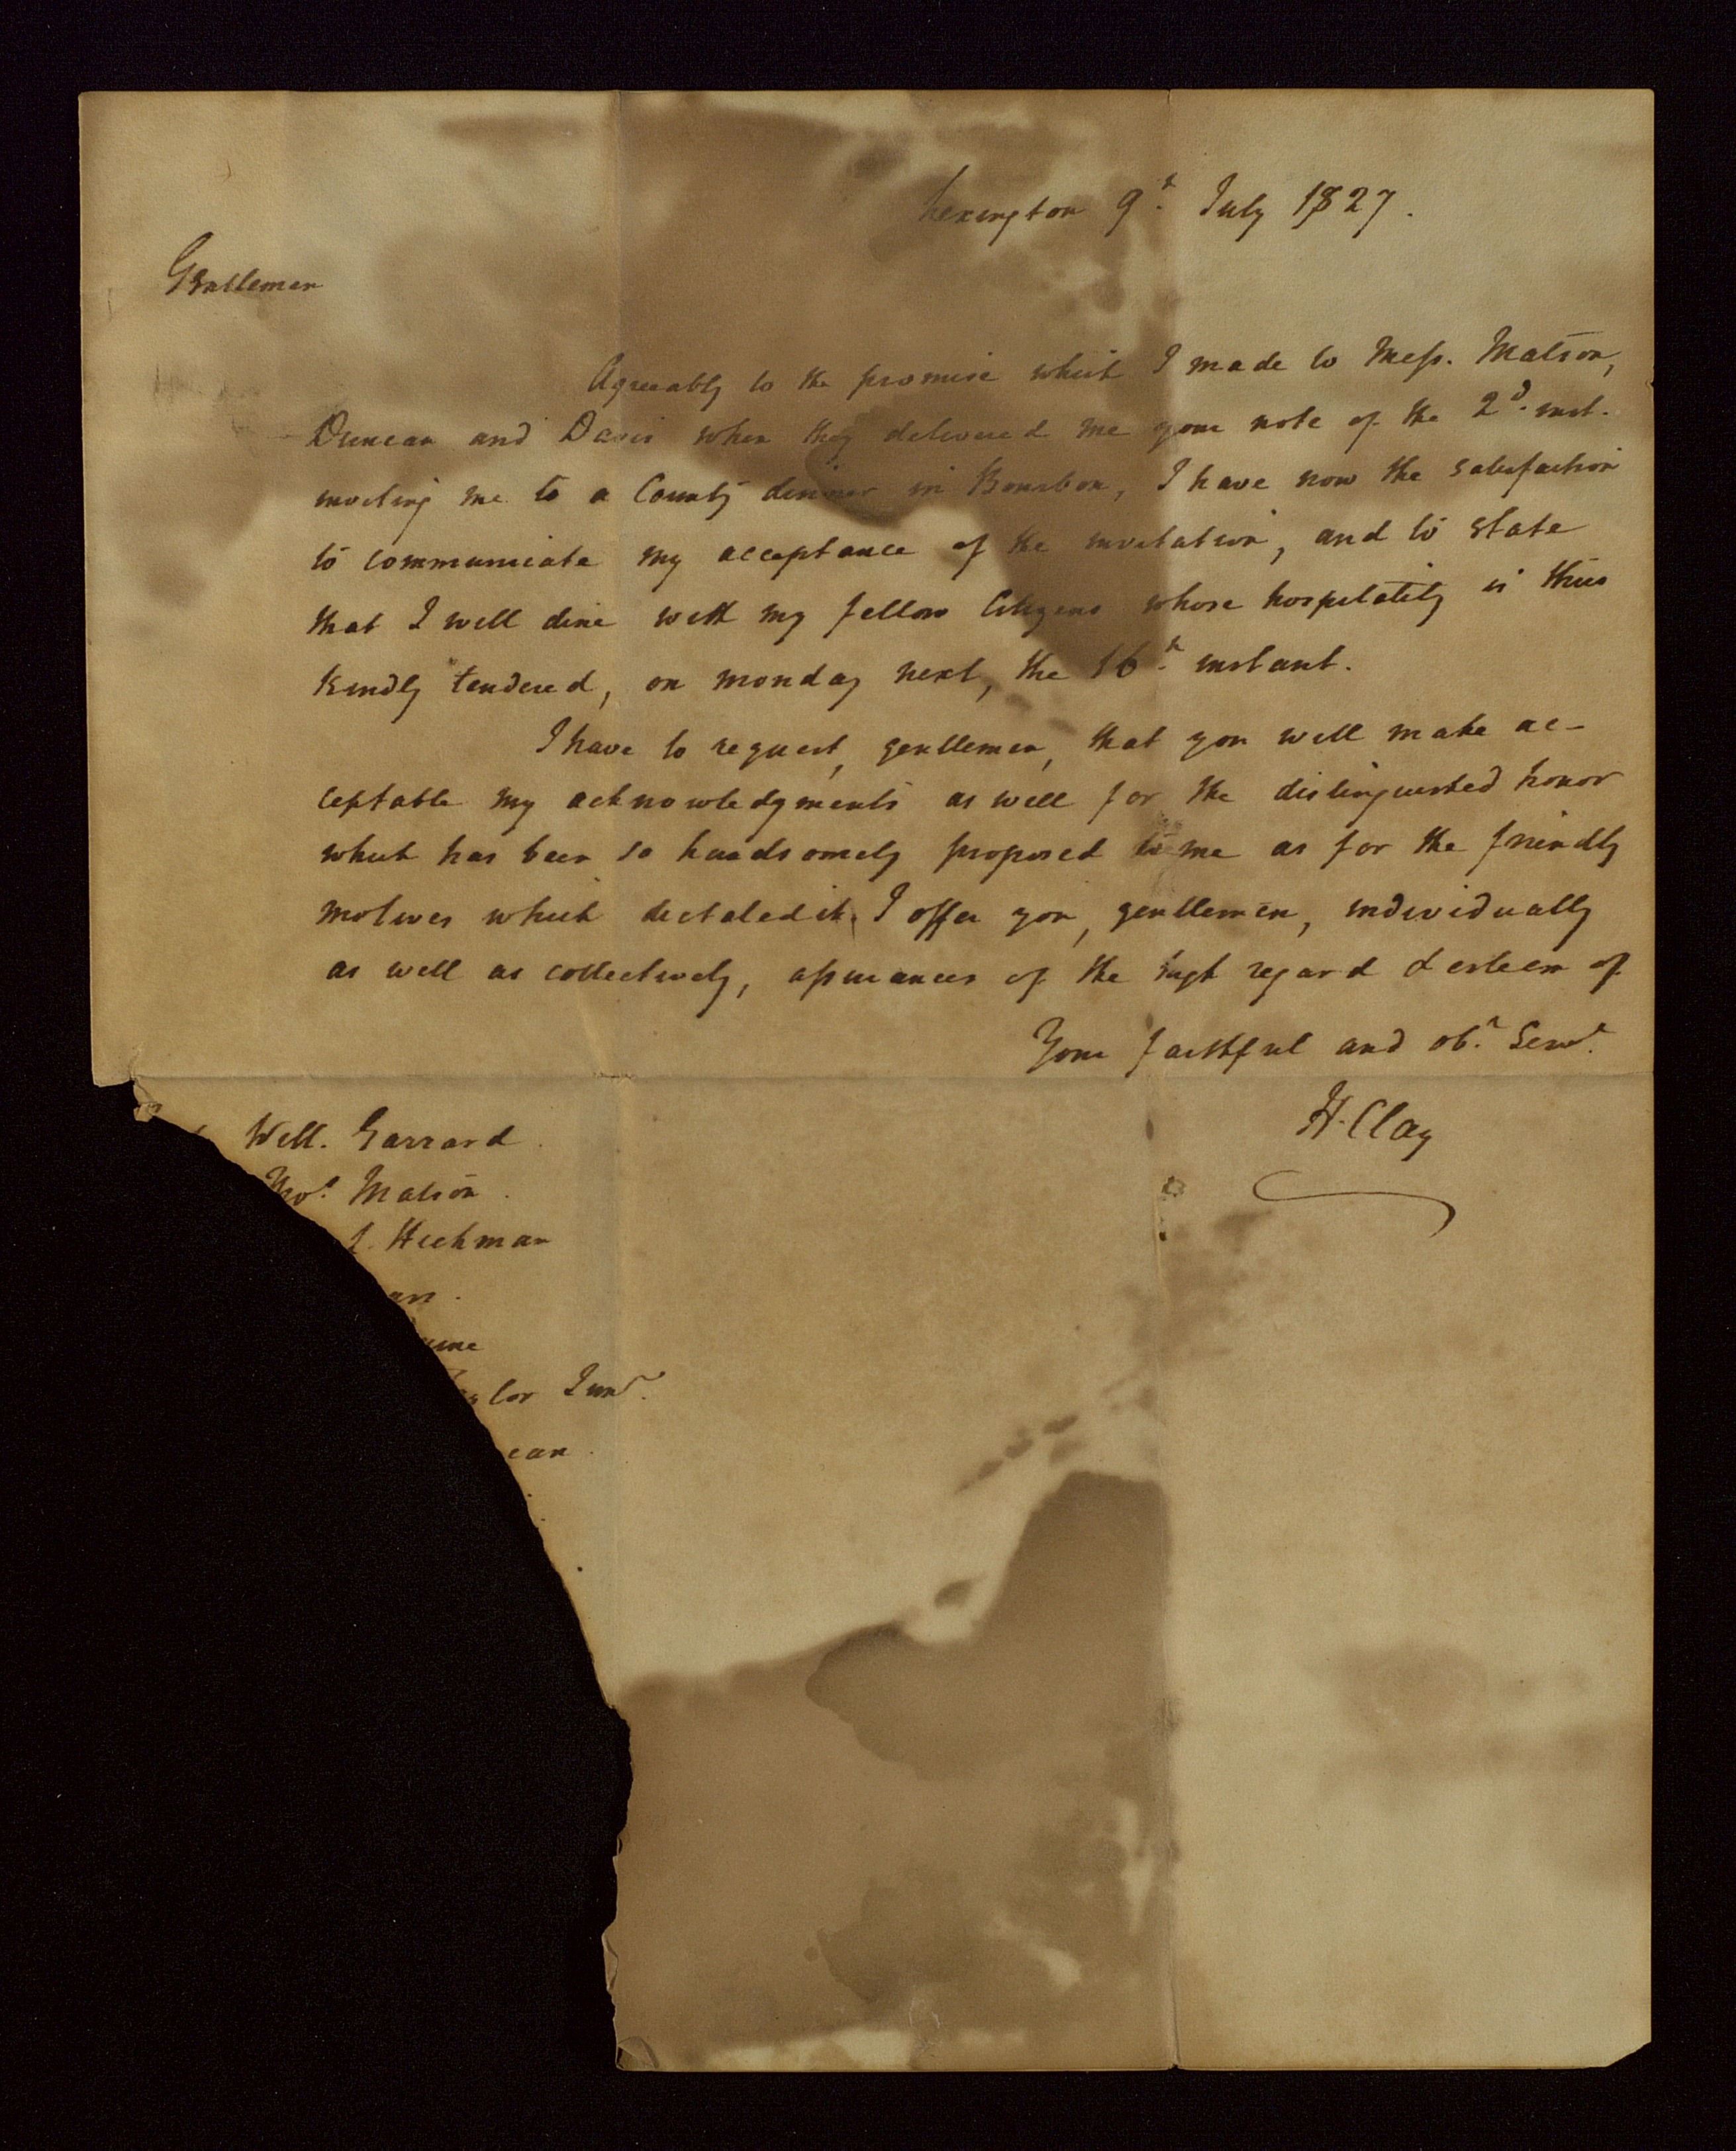 Lexington 9th July 1827.
Gentlemen
Agreeably to the promise which I made to Mess. Matson,
Duncan and Davis when they delivered me your note of the 2d. inst.
inviting me to a County dinner in Bourbon, I have now the satisfaction
to communicate my acceptance of the invitation, and to state
that I will dine with my fellow Citizens whose hospitality is thus
kindly tendered, on monday next, the 16th instant.
I have to request, gentlemen, that you will make ac-
ceptable my acknowledgments as well for the distinguished honor
which has been so handsomely proposed to me as for the friendly
motives which dictated it. I offer you, gentlemen, individually
as well as collectively, assurances of the high regard & esteem of
Your faithful and obt. Servt.
H. Clay
Will. Garrard
Tho's Matson
J. Hickman
ann.
ume
aylor Junr.
can.